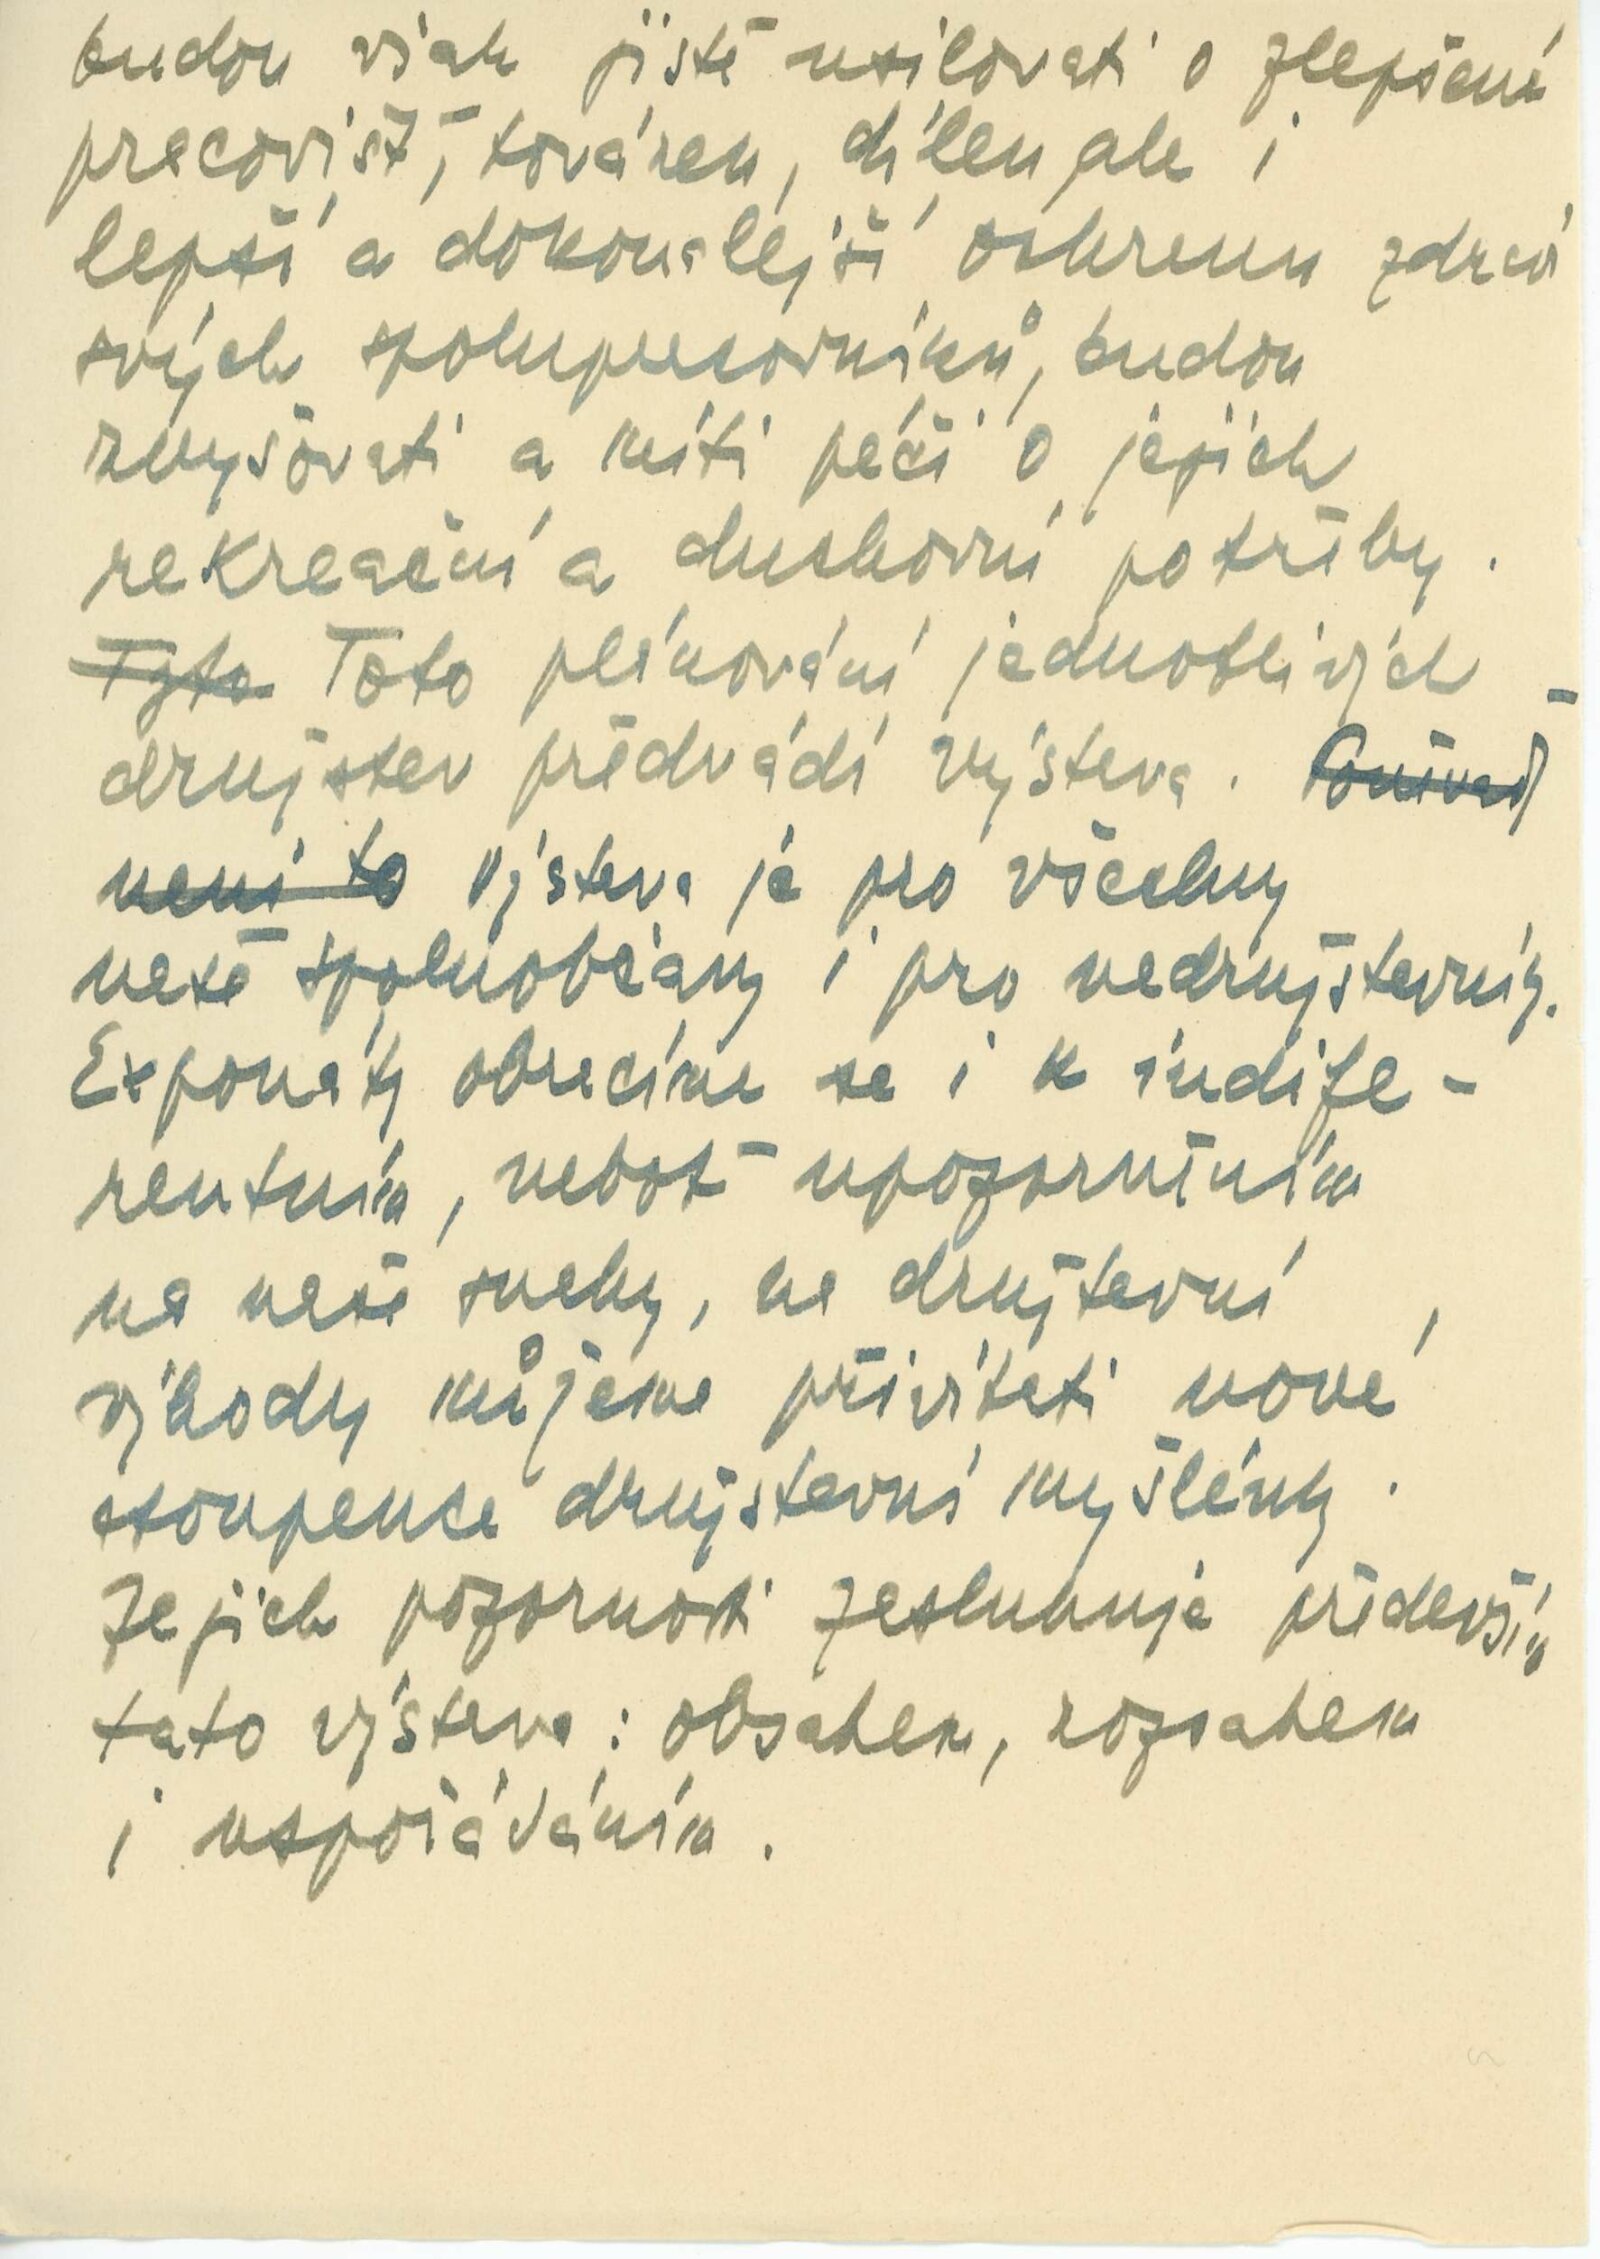 budou však jistě usilovati o zlepšení
pracovišť, továren, dílen, ale i
lepší a dokonalejší ochranu zdraví
svých spolupracovníků, budou
zvyšovati a míti péči o jejich
rekreační a duchovní potřeby.
Tyto Toto plánování jednotlivých
družstev předvádí výstava. Poněvadž
není to Výstava je pro všechny
naše spoluobčany i pro nedružstevníky.
Exponáty obracíme se i k indife-
rentním, neboť upozorněním
na naše snahy, na družstevní
výhody můžeme přivítati nové
stoupence družstevní myšlénky.
Jejich pozornosti zasluhuje především
tato výstava: obsahem, rozsahem
i uspořádáním.